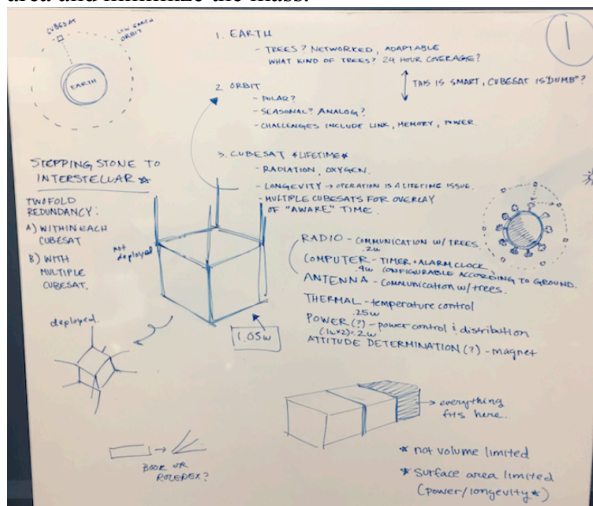 area and minimize the mass.
CUBESAT
LOW EARTH
ORBIT
EARTH
1
1. EARTH
- TREES? NETWORKED, ADAPTABLE
WHAT KIND OF TREES? 24 HOUR COVERAGE?
THIS IS SMART, CUBESAT IS "DUMB"?
2. ORBIT
- POLAR?
- SEASONAL? ANALOG?
- CHALLENGES INCLUDE LINK, MEMORY, POWER.
3. CUBESAT *LIFETIME*
- RADIATION, OXYGEN.
- LONGEVITY → OPERATION IS A LIFETIME ISSUE.
- MULTIPLE CUBESATS FOR OVERLAY
OF "AWARE" TIME.
STEPPING STONE TO
INTERSTELLAR
TWOFOLD
REDUNDANCY:
A) WITHIN EACH
CUBESAT
B) WITH
MULTIPLE
CUBESAT.
not
deployed
deployed
1.05w
RADIO - COMMUNICATION W/ TREES
.2w
COMPUTER - TIMER + ALARM CLOCK
.4w CONFIGURABLE ACCORDING TO GROUND.
ANTENNA - COMMUNICATION W/ TREES.
THERMAL - temperature control
.25w
POWER (?) - power control & distribution
(1w x 2) .2w
ATTITUDE DETERMINATION (?) - magnet
everything
fits here.
BOOK OR
ROLEDEX?
* not volume limited
* Surface area limited
(power/longevity*)